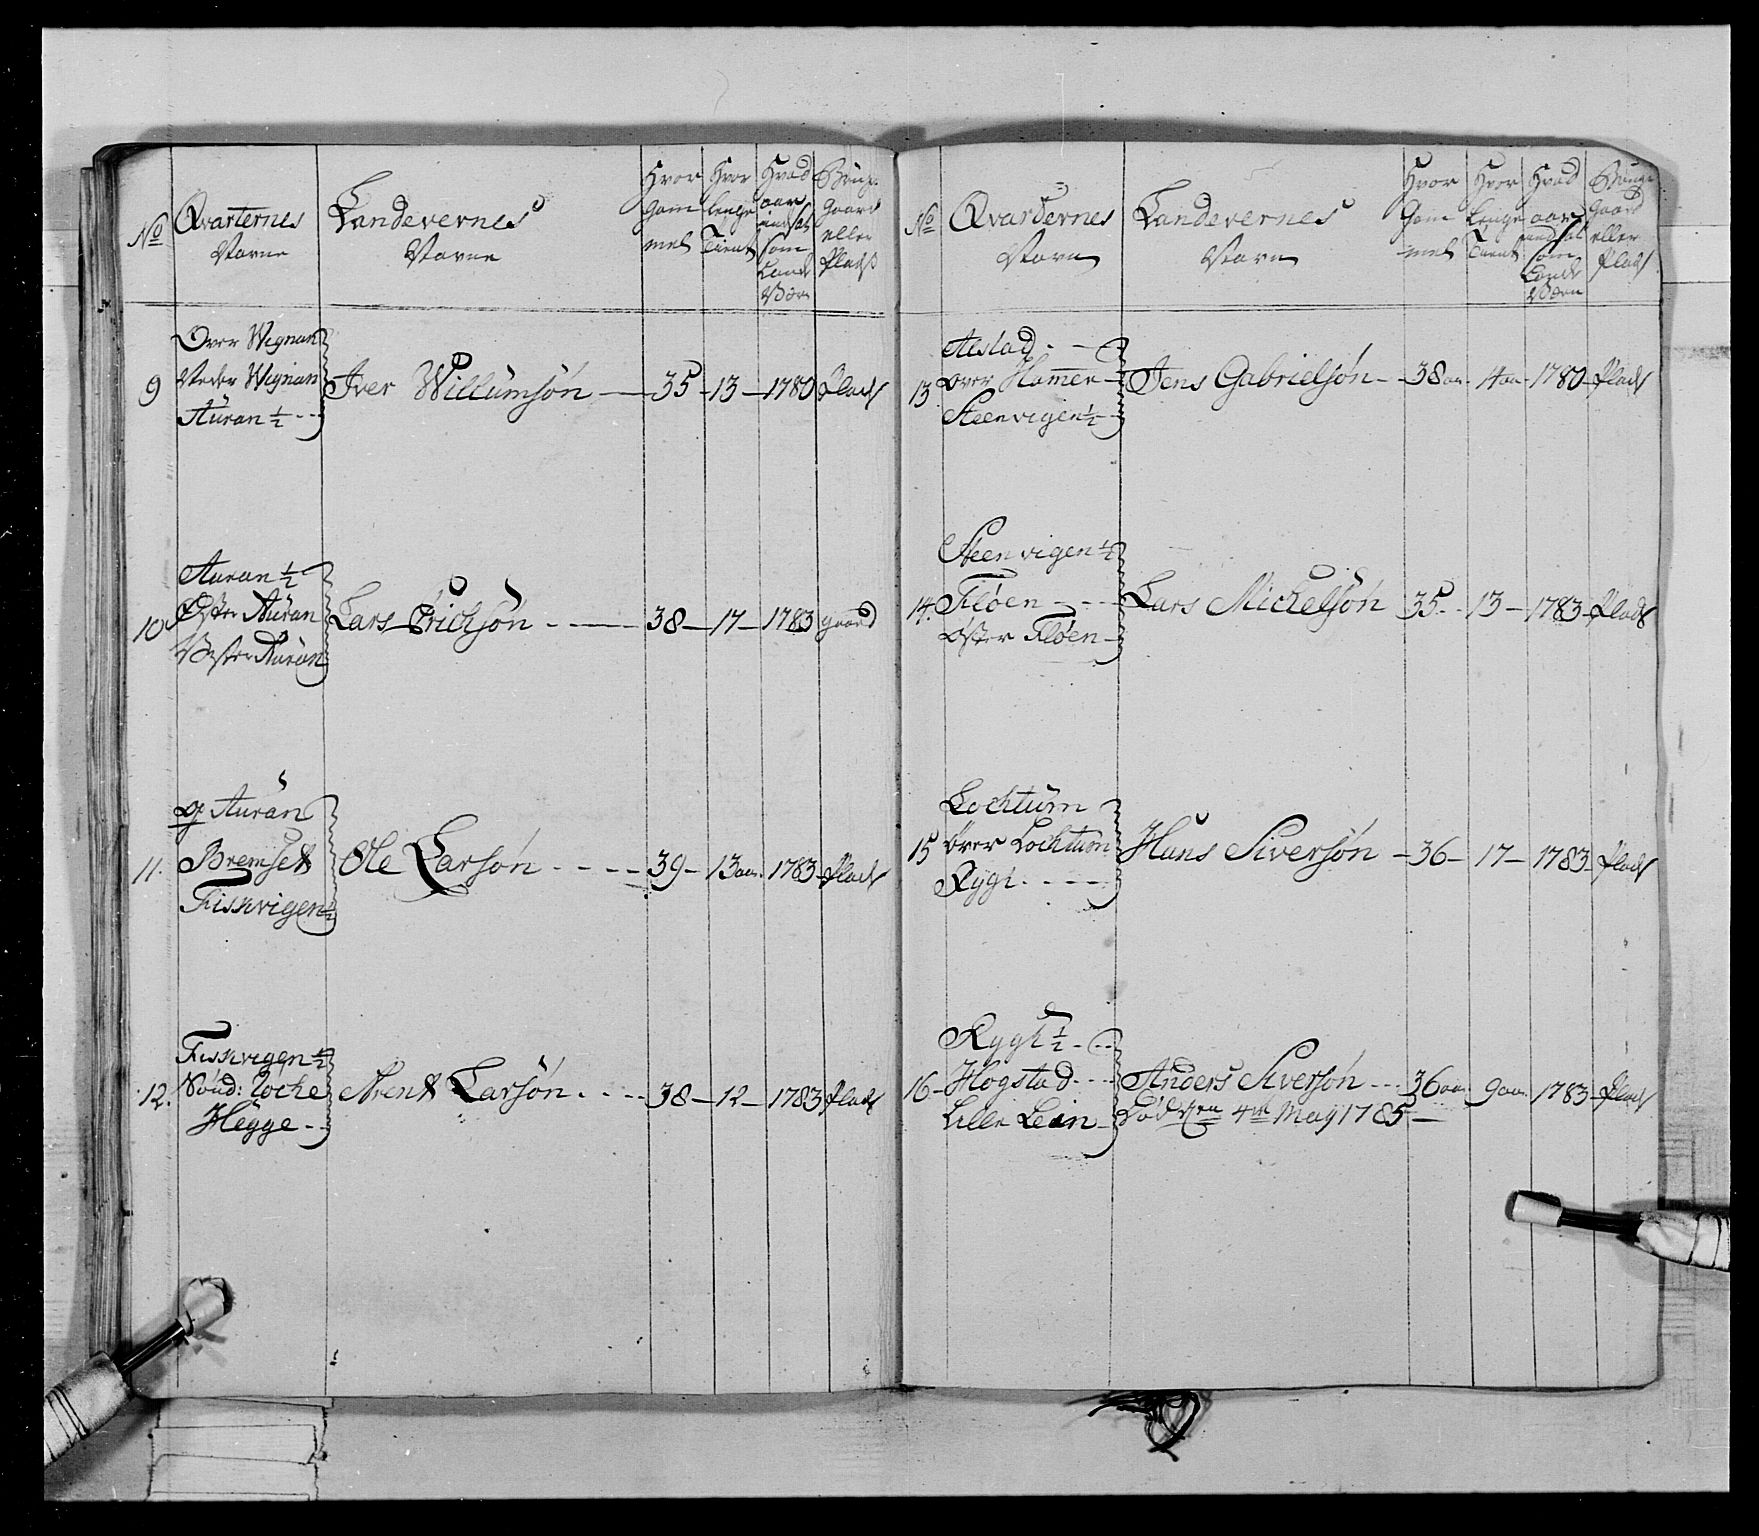 No
Qvarternes
Navne
Landevernes
Navne
Hvor
Gam
mel
Hvor
lenge
Tient
Hvad
aar
indsat
som
Land
Værn
Bruger
Gaard
eller
Plads
9
Over Wignan
Neder Wignan
Auran ½
Iver Willumsøn — 35 — 13 — 1780 Plads
10
Auran ½
Øster Auran
Vester Auran
Lars Erichsøn — 38 — 17 — 1783 gaard
11.
Auran
Bremset
Fiskvigen ½
Ole Larsøn — 39 — 13 aar 1783 Plads
12.
Fiskvigen ½
Nord: Loche
Hegge
Arent Larsøn — 38 — 12 — 1783 Plads
No
Qvarternes
Navn
Landevernes
Navn
Hvor
Gam
mel
Hvor
Lenge
Tient
Hvad
aar
indsat
som
Lande
Værn
Bruger
Gaard
eller
Plads
13
Alstad
over Hammer
Steenvigen ½
Jens Gabrielsøn — 38 aar 14 aar 1780 Plads
14.
Steenvigen ½
Fløen
Øster Fløen
Lars Michelsøn 35 13 — 1783 Plads
15
Lochtum
over Lochtum
Rygt
Hans Siversøn — 36 — 17 — 1783 Plads
16
Rygt ½
Hogstad
Lille Lein
Anders Siversøn 36 aar 9 aar 1783 Plads
Død den 4de May 1785 —